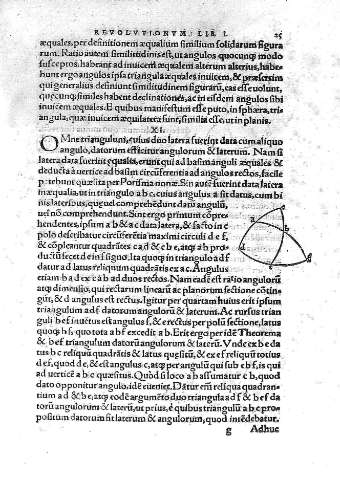 REVOLVTIONVM LIB. I. 25
æquales, per definitionem æqualium similium solidarum figura
rum. Ratio autem similitudinis est, ut angulos quocunqʒ modo
susceptos, habeant ad inuicem æqualem alterum alterius, habe
bunt ergo angulos ipsa triangula æquales inuicem, & præterim
qui generalius definiunt similitudinem figurarũ, eas esse uolunt,
quecunqʒ similes habent declinationes, ac in eisdem angulos sibi
inuicem æquales. E quibus manifestum esse puto, in sphæra, tri
angula, quæ inuicem æquilatera sunt, similia esse, ut in planis.
XI.
OMne triangulum, cuius duo latera fuerint data cum aliquo
angulo, datorum efficitur angulorum & laterum. Nam si
latera data fuerint equales, erunt qui ad basim anguli æquales &
deducta à uertice ad basim circũferentia ad angulos rectos, facile
patebunt quæsita per Porisma nonæ. Sin autẽ fuerint data latera
inæqualia, ut in triangulo a b c, cuius angulus a sit datus, cum bi
nis lateribus, quę uel comprehendunt datũ angulũ,
uel nõ comprehendunt. Sint ergo primum cõpre-
hendentes, ipsum a b & a c data latera, & facto in c
polo describatur circũferẽtia maximi circuli d e f,
& cõpleantur quadrãtes c a d & c b e, atqʒ a b pro
ductũ secet d e in f signo. Ita quoqʒ in triangulo a d f
datur a d latus reliquum quadrãtis ex a c. Angulus
etiam b a d ex c a b ad duos rectos. Nam eadẽ est ratio angulorũ
atqʒ dimensio, qui rectarum linearũ ac planorum sectione cõtin-
gũt, & d angulus est rectus. Igitur per quartam huius erit ipsum
triangulum a d f datorum angulorũ & laterum. Ac rursus trian
guli b e f inuẽtus est angulus f, & e rectus per polũ sectione, latus
quoqʒ b f, quo tota a b f excedit a b. Erit ergo per idẽ Theorema
& b e f triangulum datorũ angulorũ & laterum. Vnde ex b e da
tur b c reliquũ quadrãtis & latus quęsitũ, & ex e f reliquũ totius
d e f, quod d e, & est angulus c, atqʒ per angulũ qui sub e b f, is qui
ad uerticẽ a b c quæsitus. Quòd si loco a b assumatur c b, quod
dato opponitur angulo, idẽ eueniet. Dãtur em̃ reliqua quadran-
tium a d & b e, atqʒ codẽ argumẽto duo triangula a d f & b e f da
torũ angulorum & laterũ, ut prius, è quibus triangulũ a b c pro-
positum datorum fit laterum & angulorum, quod intẽdebatur.
g Adhuc
a
b
c
d
e
f